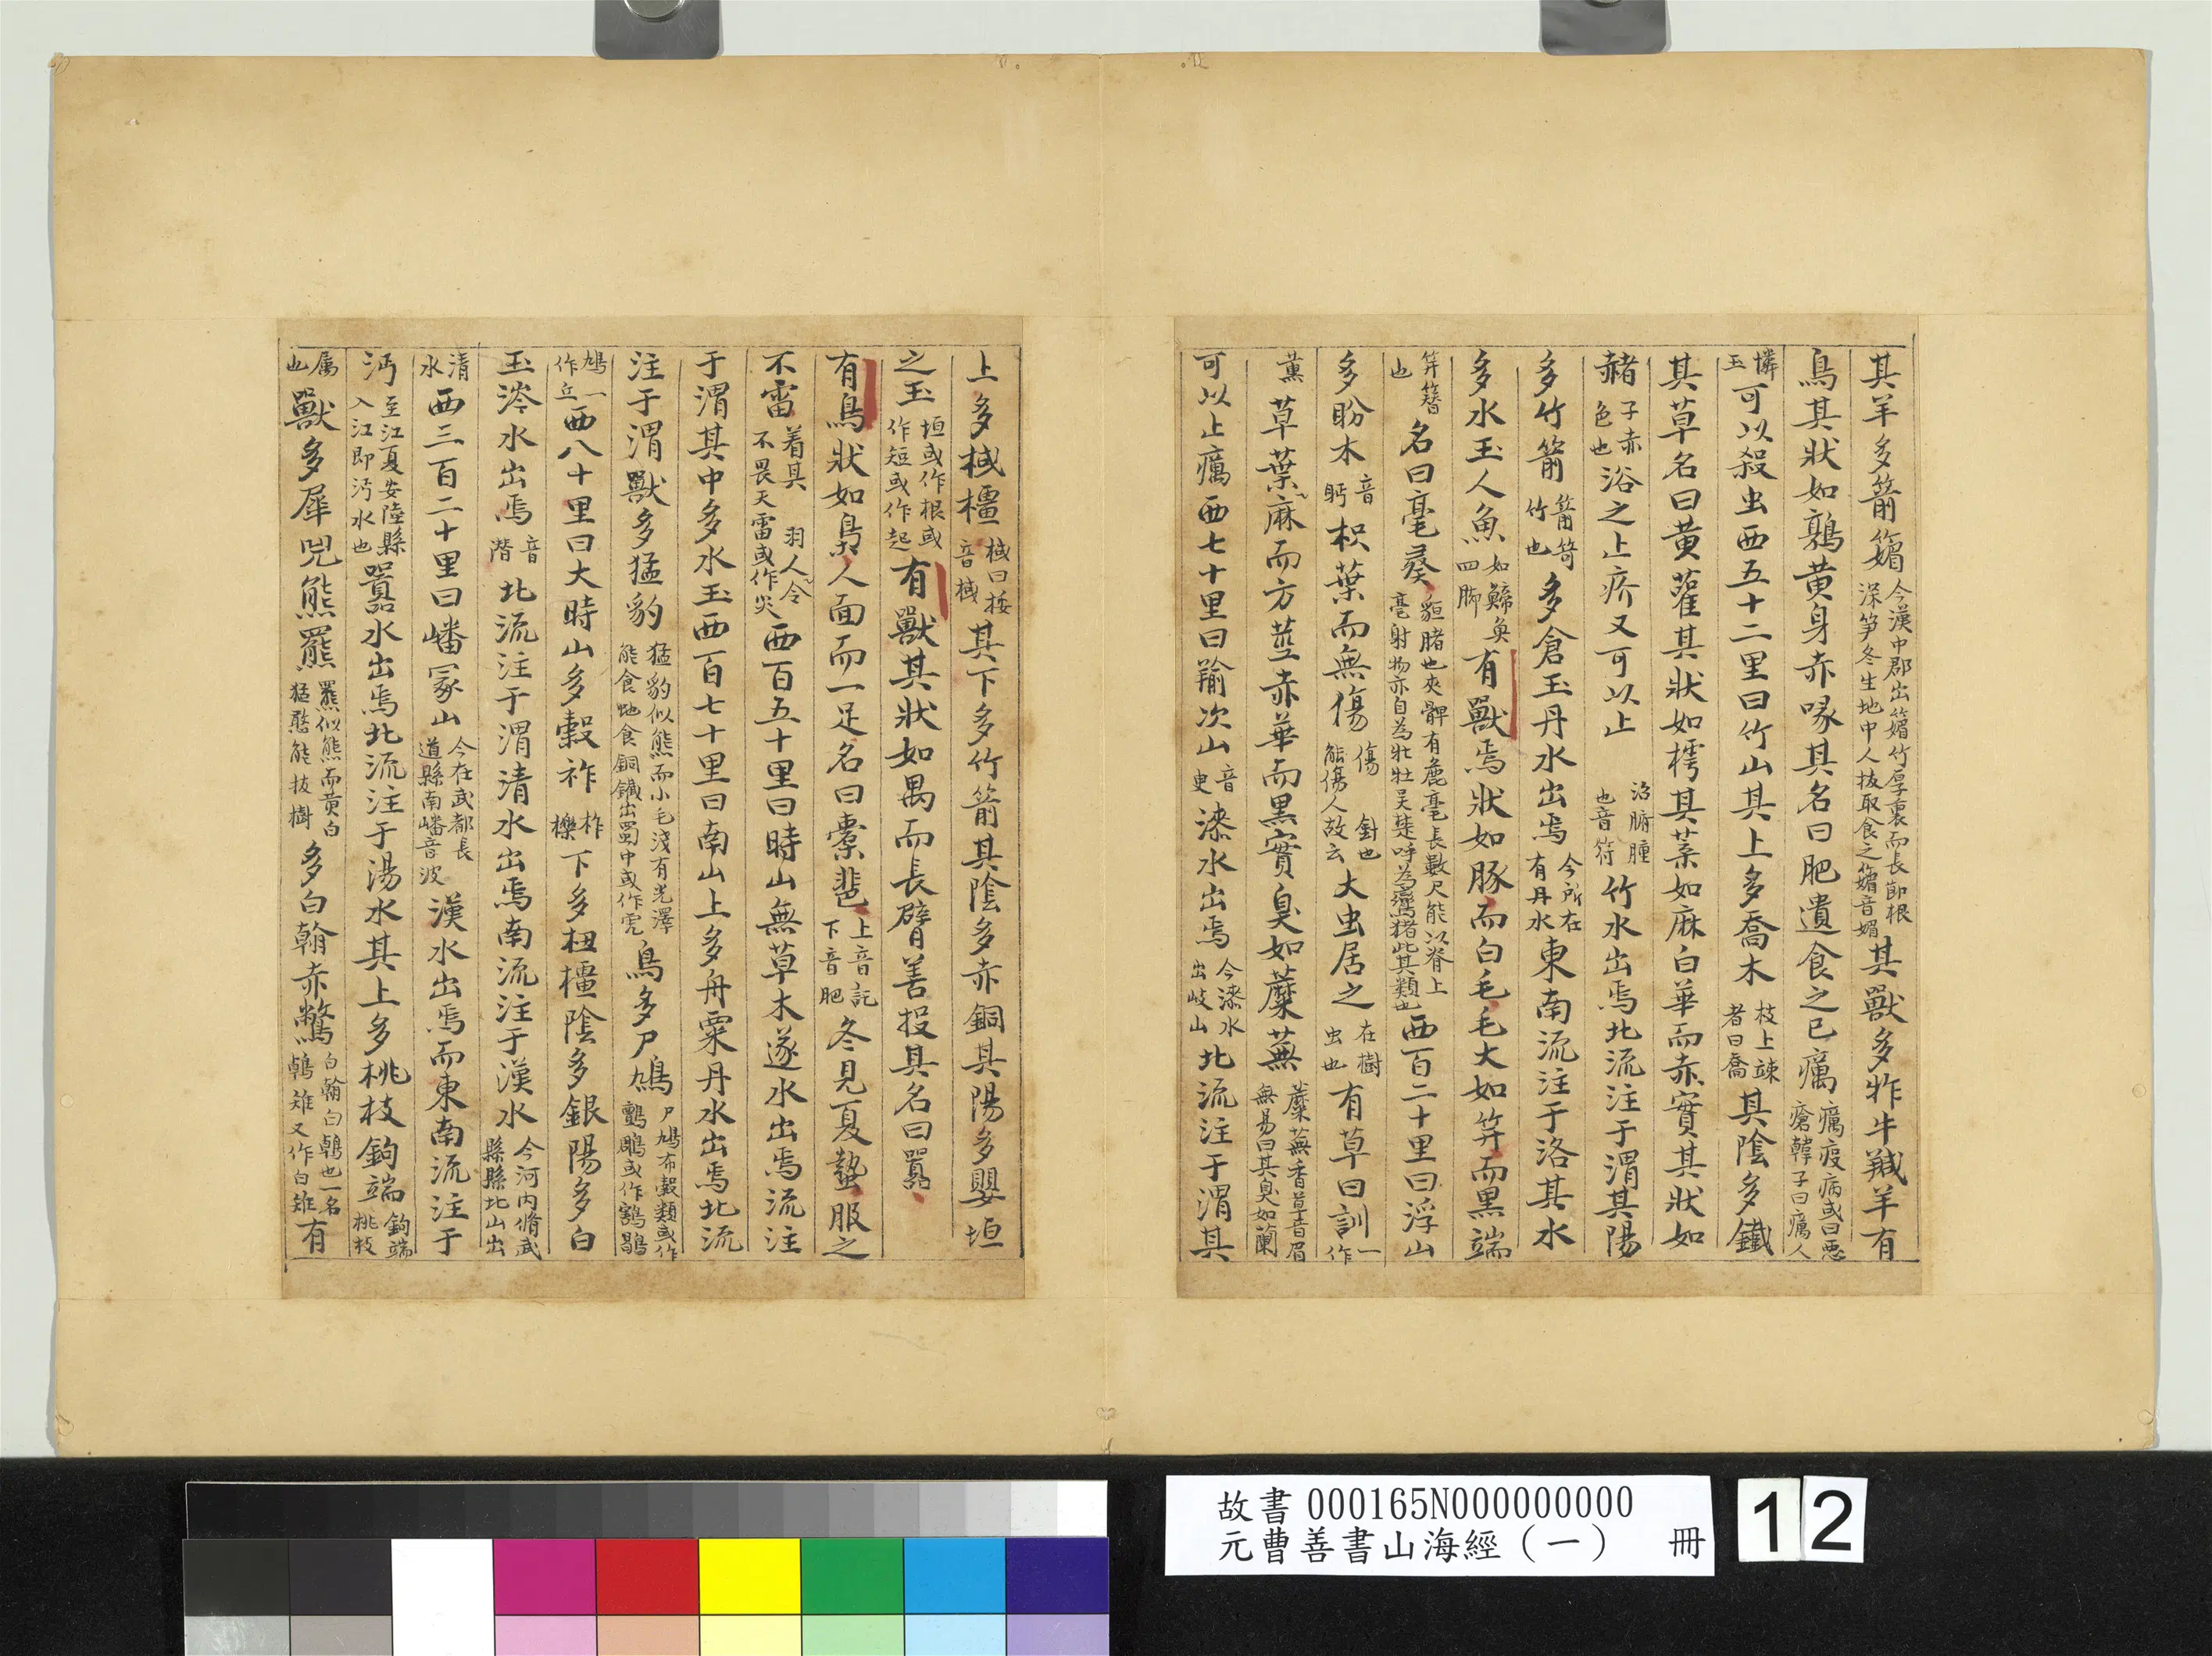 其羊多箭䉋今漢中郡出䉋竹厚裏而長節根深笋冬生地中人抜取食之䉋音媚其獸多㸲牛羬羊有
鳥其狀如鶉黄身赤喙其名曰肥遺食之已癘癘疫病或曰惡瘡韓子曰癘人
憐玉可以殺虫西五十二里曰竹山其上多喬木枝上竦者曰喬其陰多鐵
其草名曰黄雚其狀如樗其葉如麻白華而赤實其狀如
赭子赤色也浴之止疥又可以止治胕腫也音符竹水出焉北流注于渭其陽
多竹箭箭笴竹也多倉玉丹水出焉今所在有丹水東南流注于洛其水
多水玉人魚如鯑奐四脚有獸焉狀如豚而白毛毛大如筓而黑端
筓簪也名曰毫彘貆豬也夾髀有麁毫長數尺能以脊上毫射物亦自為牝牡吴楚呼為鸞猪此其類也西百二十里曰浮山
多盼木音眄枳葉而無傷傷針也能傷人故云大虫居之在樹虫也有草曰訓一作
薰草葉麻而方莖赤華而黑實臭如蘪蕪蘪蕪香草音眉無易曰其臭如蘭
可以止癘西七十里曰羭次山音臾漆水出焉今漆水出岐山北流注于渭其
上多棫橿棫曰桵音棫其下多竹箭其陰多赤銅其陽多嬰垣
之玉垣或作根或作短或作起有獸其狀如禺而長臂善投其名曰嚻
有鳥狀如梟人面而一足名曰橐𩇯上音託下音肥冬見夏蟄服之
不雷着其羽人令不畏天雷或作災西百五十里曰時山無草木遂水出焉流注
于渭其中多水玉西百七十里曰南山上多丹粟丹水出焉北流
注于渭獸多猛豹猛豹似熊而小毛淺有光澤能食虵食銅鐵出蜀中或作虎鳥多尸鳩尸鳩布穀類或作鸜鵰或作鶷鶡
鳩一作丘西八十里曰大時山多榖祚柞櫟下多杻橿陰多銀陽多白
玉涔水出焉音潛北流注于渭清水出焉南流注于漢水今河内脩武縣縣北山出
清水西三百二十里曰嶓冢山今在武都長道縣南嶓音波漢水出焉而東南流注于
沔至江夏安陸縣入江即沔水也嚻水出焉北流注于湯水其上多桃枝鉤端鉤端桃枝
属也獸多犀兕熊羆羆似熊而黄白猛憨能抜樹多白翰赤鷩白翰白鵫也一名鵫雉又作白雉有
故書 000165N000000000
元曹善書山海經（一） 冊
12